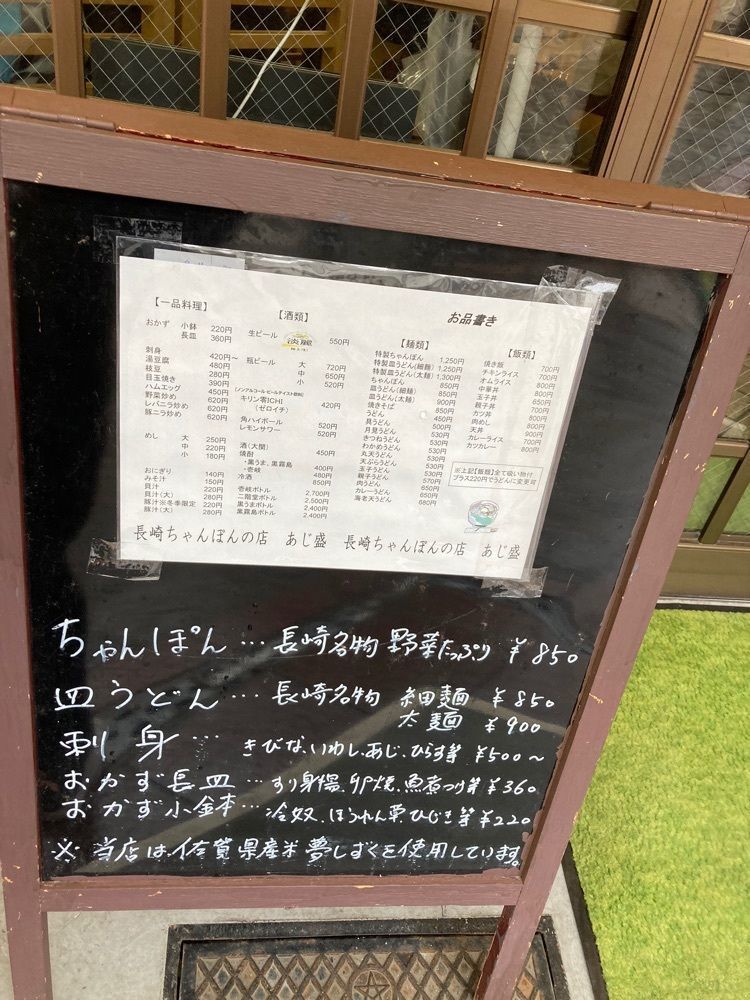 お品書き
【一品料理】
おかず 小鉢 220円
長皿 360円
刺身 420円～
湯豆腐 480円
枝豆 280円
目玉焼き 280円
ハムエッグ 390円
野菜炒め 450円
レバニラ炒め 620円
豚ニラ炒め 620円
めし 大 250円
中 220円
小 180円
おにぎり 140円
みそ汁 150円
貝汁 220円
貝汁(大) 280円
豚汁※冬季限定 220円
豚汁(大) 280円
【酒類】
生ビール 550円
瓶ビール 大 720円
中 650円
小 520円
[ノンアルコールビールテイスト飲料]
キリン零ICHI 420円
(ゼロイチ)
角ハイボール 520円
レモンサワー 520円
酒(大関) 450円
焼酎
・黒うま、黒霧島 400円
・壱岐 480円
冷酒 850円
壱岐ボトル 2,700円
二階堂ボトル 2,500円
黒うまボトル 2,400円
黒霧島ボトル 2,400円
【麺類】
特製ちゃんぽん 1,250円
特製皿うどん(細麺) 1,250円
特製皿うどん(太麺) 1,300円
ちゃんぽん 850円
皿うどん(細麺) 850円
皿うどん(太麺) 900円
焼きそば 850円
うどん 450円
具うどん 500円
月見うどん 530円
きつねうどん 530円
わかめうどん 530円
丸天うどん 530円
天ぷらうどん 530円
玉子うどん 530円
親子うどん 570円
肉うどん 650円
カレーうどん 650円
海老天うどん 680円
【飯類】
焼き飯 700円
チキンライス 700円
オムライス 800円
中華丼 800円
玉子丼 650円
親子丼 700円
カツ丼 800円
肉めし 800円
天丼 900円
カレーライス 700円
カツカレー 800円
※上記【飯類】全て吸い物付
プラス220円でうどんに変更可
長崎ちゃんぽんの店 あじ盛 長崎ちゃんぽんの店 あじ盛
ちゃんぽん…長崎名物 野菜たっぷり ¥850
皿うどん…長崎名物 細麺 ¥850
太麺 ¥900
刺身…きびな、いわし、あじ、ひらす等 ¥500～
おかず長皿…すり身揚、卵焼、魚煮つけ等¥360
おかず小鉢…冷奴、ほうれん草ひじき等¥220
※当店は、佐賀県産米夢しずくを使用しています。